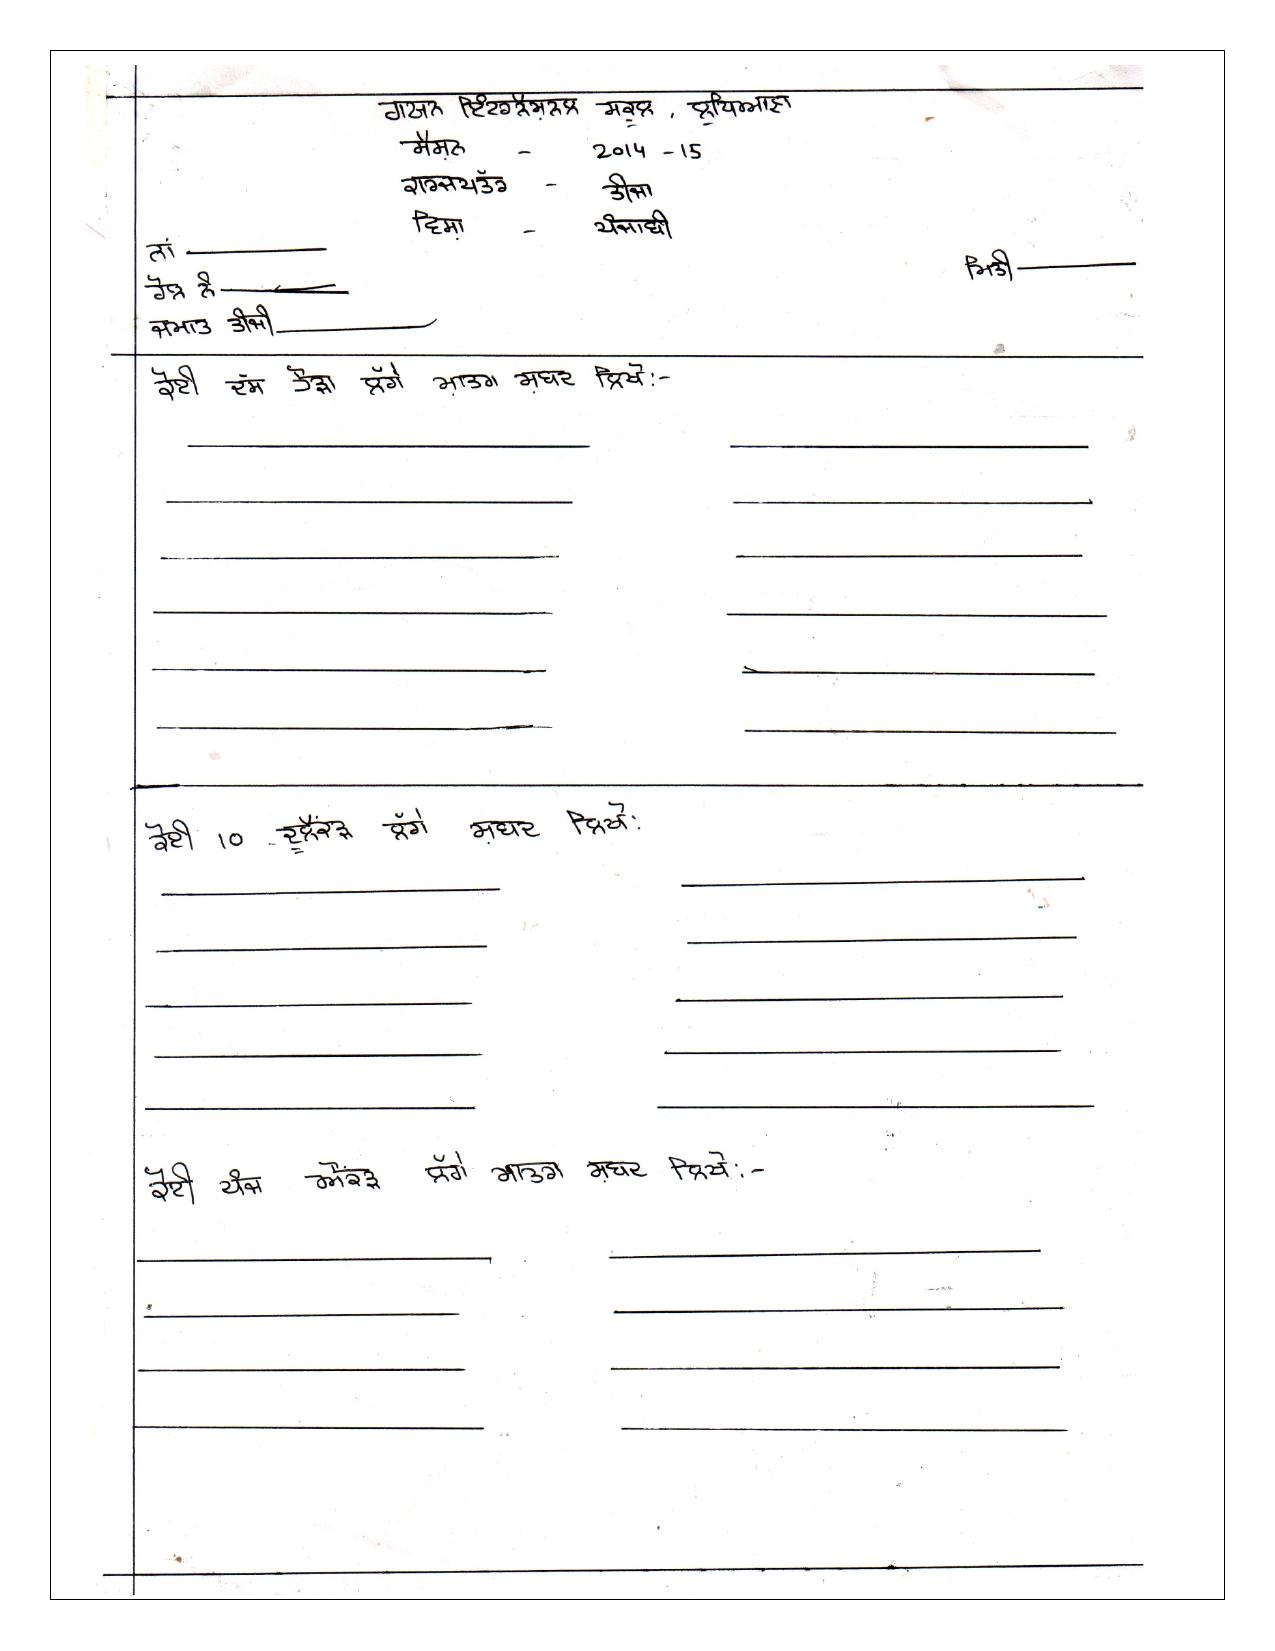 ਗਯਨ ਇੰਟਰਨੈਸ਼ਨਲ ਸਕੂਲ , ਲੁਧਿਆਣਾ
ਸੈਸ਼ਨ - 2014 - 15
ਕਾਰਜਪਤੱਰ - ਤੀਜਾ
ਵਿਸ਼ਾ - ਪੰਜਾਬੀ
ਨਾਂ
ਮਿਤੀ
ਰੋਲ ਨੰ
ਜਮਾਤ ਤੀਜੀ
ਕੋਈ ਦਸ ਹੋੜਾ ਲੱਗੇ ਮਾਤਰਾ ਸ਼ਬਦ ਲਿਖੋ:-
ਕੋਈ 10 ਦੁਲੈਂਕੜ ਲੱਗੇ ਸ਼ਬਦ ਲਿਖੋ:
ਕੋਈ ਪੰਜ ਔਂਕੜ ਲੱਗੇ ਮਾਤਰਾ ਸ਼ਬਦ ਲਿਖੋ:-